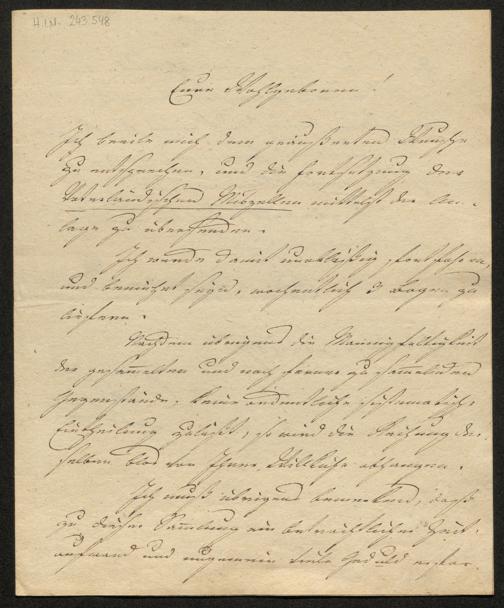 H.I.N. 243.548
Euer Wohlgeboren!
Ich beeile mich dem geäußerten Wunsche
zu entsprechen, und die Fortsetzung der
Vaterländischen Miszellen mittelst der An-
lage zu übersenden.
Ich werde damit unablässig fortfahren,
und bemüht seyn, wochentlich 3 Bogen zu
liefern.
Nachdem übrigens die Mannigfaltigkeit
der gesammelten und noch ferner zu sammelnden
Gegenstände, keine ordentliche sistematische
Eintheilung zuläßt, so wird die Reihung der-
selben blos von Ihrer Willkühr abhangen.
Ich muß übrigens bemerken, daß
zu dieser Sammlung ein beträchtlicher Zeit-
aufwand und ungemein viele Geduld erfor-